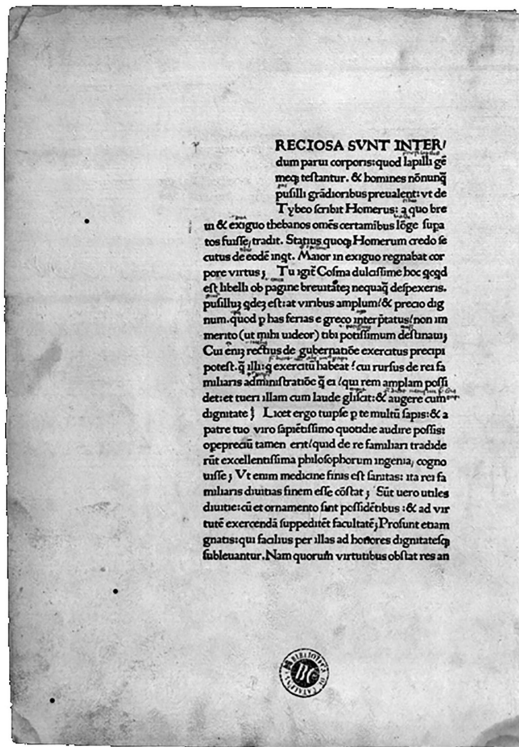 RECIOSA SVNT INTER/
dum parui corporis: quod lapilli gē
meqʒ testantur. & homines nōnunq̄
pusilli grādioribus preualent: vt de
Tybeo scribit Homerus: a quo bre
ui & exiguo thebanos omēs certamibus lōge supa
tos fuisse, tradit. Statius quoqʒ Homerum credo se
cutus de eodē inqt. Maior in exiguo regnabat cor
pore virtus; Tu igit̄ Cosma dulcissime hoc qcqd
est libelli ob pagine breuitatē nequaq̄ despexeris.
pusillū qdeʒ est: at viribus amplum/ & precio dig
num. quod p has ferias e greco interp̄tatus/ non im
merito (ut mihi uideor) tibi potissimum destinaui;
Cui eniʒ rectius de gubernatiōe exercitus precipi
potest. q̄ illi: q exercitū habeat? cui rursus de rei fa
miliaris administratiōe q̄ ei/ qui rem amplam possi
det: et tueri illam cum laude gliscit: & augere cum
dignitate? Licet ergo tuipse p te multū sapis: & a
patre tuo viro sapiētissimo quotidie audire possis:
opepreciū tamen erit/ quid de re familiari tradide
rūt excellentissima philosophorum ingenia, cogno
uisse; Vt enim medicine finis est sanitas: ita rei fa
miliaris diuitias finem esse cōstat; Sūt uero utiles
diuitie: cū et ornamento sint possidētibus: & ad vir
tutē exercendā suppeditēt facultatē; Prosunt etiam
gnatis: qui facilius per illas ad honores dignitatesqʒ
subleuantur. Nam quorum virtutibus obstat res an
BIBLIOTECA DE CATALUNYA
BC